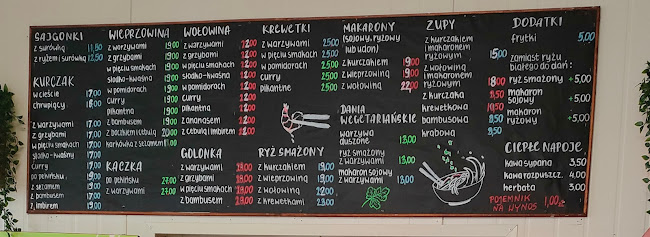 SAJGONKI
z surówką 11,50
z ryżem i surówką 12,50
KURCZAK
w cieście 17,00
chrupiący 18,00
z warzywami 17,00
z grzybami 17,00
w pięciu smakach 17,00
słodko-kwaśny 17,00
curry 17,00
po pekińsku 19,00
z sezamem 19,00
z bambusem 17,00
z imbirem 19,00
WIEPRZOWINA
z warzywami 19,00
z grzybami 19,00
w pięciu smakach 19,00
słodko-kwaśna 19,00
w pomidorach 19,00
curry 19,00
pikantna 19,00
z bambusem 19,00
z boczkiem i cebulą 20,00
karkówka z sezamem
KACZKA
po pekińsku 27,00
z warzywami 27,00
WOŁOWINA
z warzywami 22,00
z grzybami 22,00
w pięciu smakach 22,00
słodko-kwaśna 22,00
w pomidorach 22,00
curry 22,00
pikantna 22,00
z bambusem 22,00
z ananasem 22,00
z cebulą i imbirem 22,00
GOLONKA
z warzywami 23,00
z grzybami 23,00
w pięciu smakach 23,00
z bambusem 23,00
KREWETKI
z warzywami 25,00
z grzybami 25,00
w pięciu smakach 25,00
w pomidorach 25,00
curry 25,00
pikantne 25,00
RYŻ SMAŻONY
z kurczakiem 19,00
z wieprzowiną 19,00
z wołowiną 22,00
z krewetkami 23,00
MAKARONY
(sojowy, ryżowy
lub udon)
z kurczakiem 19,00
z wieprzowiną 19,00
z wołowiną 22,00
DANIA
WEGETARIAŃSKIE
warzywa
duszone 13,00
ryż smażony
z warzywami 13,00
makaron sojowy
z warzywami 13,00
ZUPY
z kurczakiem
i makaronem
ryżowym 15,00
z wołowiną
i makaronem
ryżowym 18,00
z kurczaka 8,50
krewetkowa 10,50
bambusowa 8,50
krabowa 8,50
DODATKI
frytki 5,00
zamiast ryżu
białego do dań:
ryż smażony +5,00
makaron
sojowy +5,00
makaron
ryżowy +5,00
CIEPŁE NAPOJE
kawa sypana 3,50
kawa rozpuszcz. 4,00
herbata 3,00
POJEMNIK
NA WYNOS 1,00